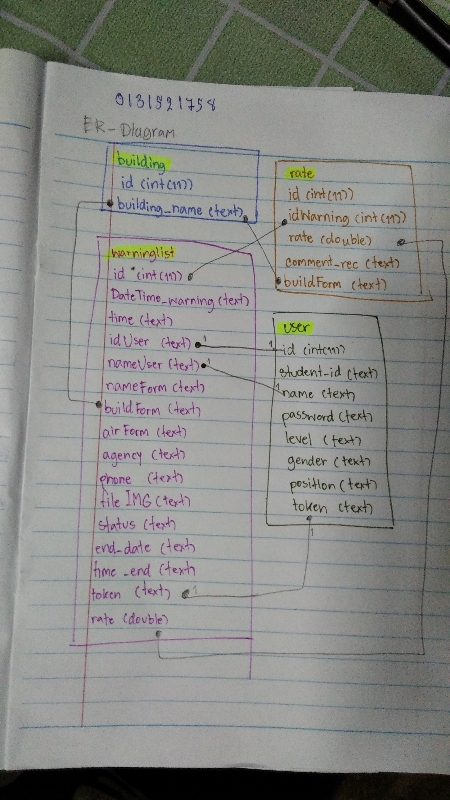 0131521758
ER-Diagram
building
id (int(11))
building_name (text)
rate
id (int(11))
idWarning (int(11))
rate (double)
comment_rec (text)
buildForm (text)
warninglist
id (int(11))
DateTime_warning (text)
time (text)
idUser (text)
nameUser (text)
nameForm (text)
buildForm (text)
airForm (text)
agency (text)
phone (text)
file IMG (text)
status (text)
end_date (text)
time_end (text)
token (text)
rate (double)
user
id (int(11))
student-id (text)
name (text)
password (text)
level (text)
gender (text)
position (text)
token (text)
1
1
1
1
1
1